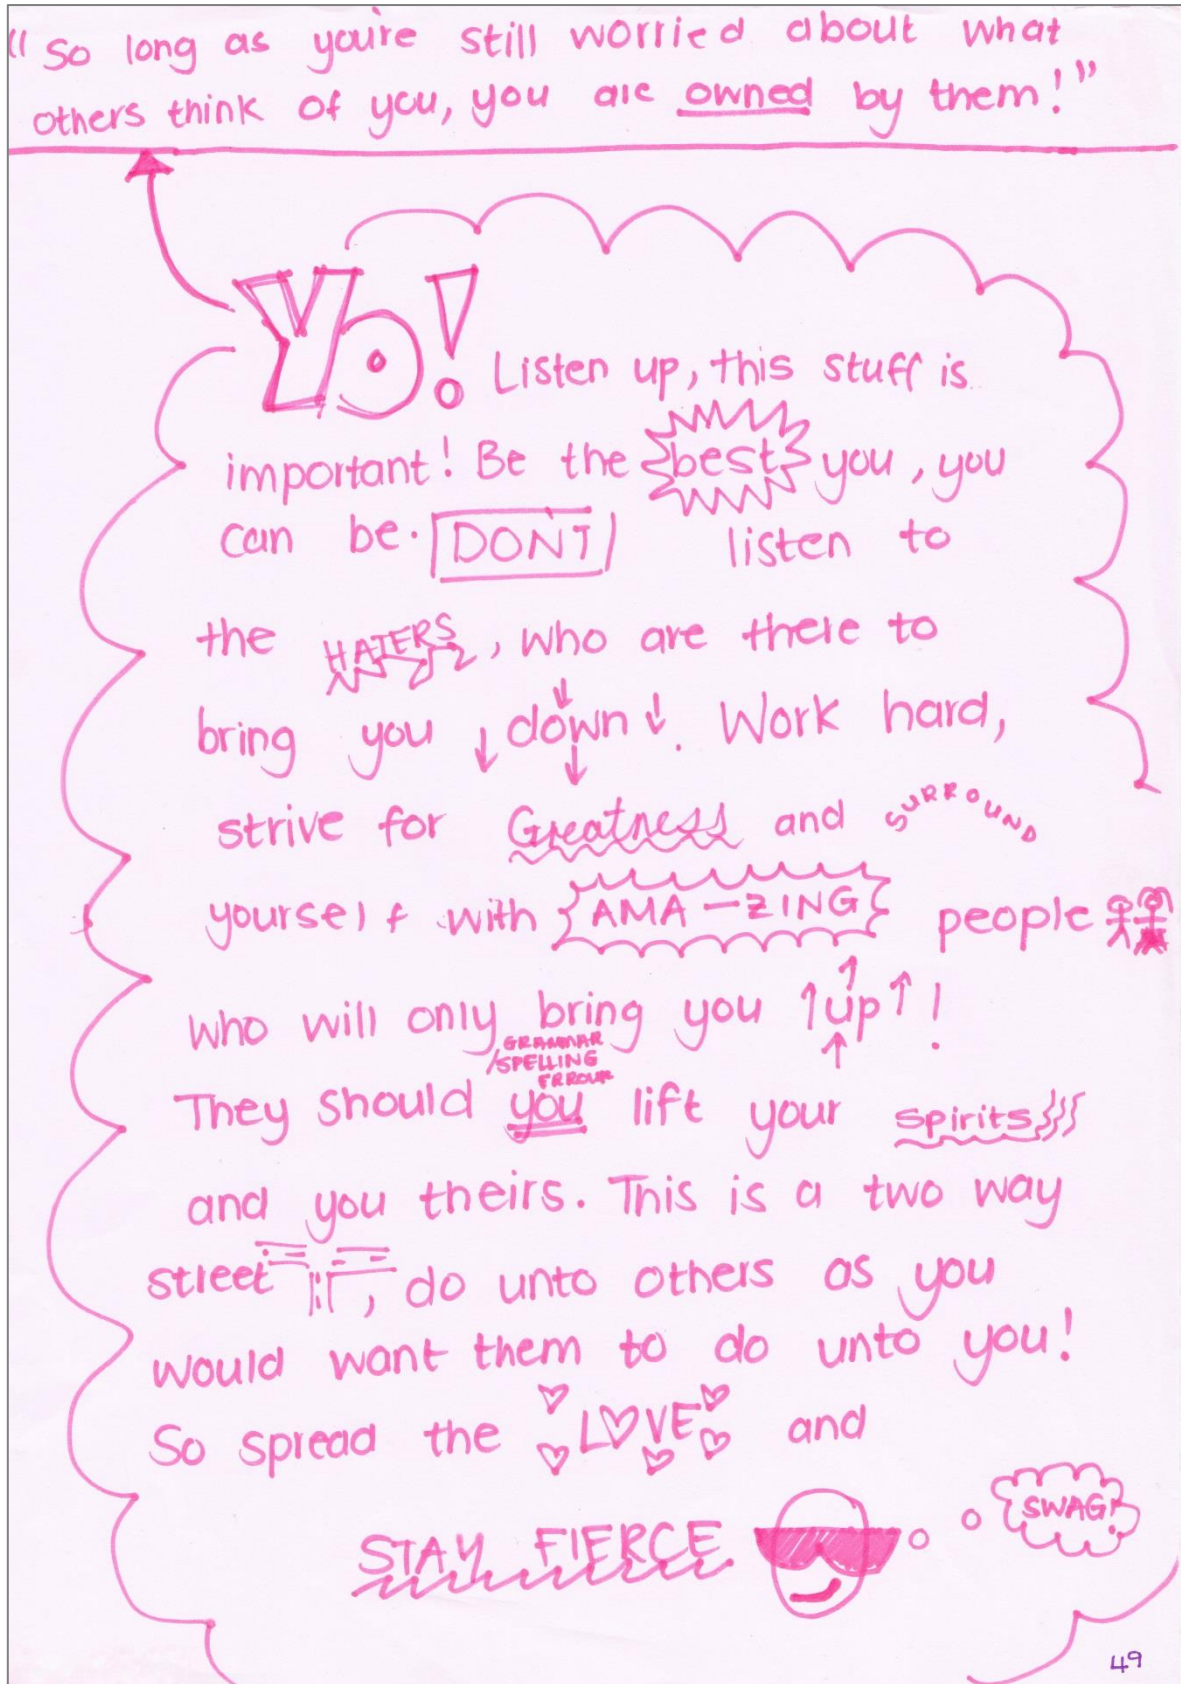 "So long as you're still worried about what
others think of you, you are owned by them!"
Yo! Listen up, this stuff is
important! Be the best you, you
can be. DON'T listen to
the HATERS, who are there to
bring you down. Work hard,
strive for Greatness and SURROUND
yourself with AMA-ZING people
who will only bring you up!
GRAMMAR
/SPELLING
ERROUR
They should you lift your spirits
and you theirs. This is a two way
street, do unto others as you
would want them to do unto you!
So spread the LOVE and
STAY FIERCE
SWAG!
49